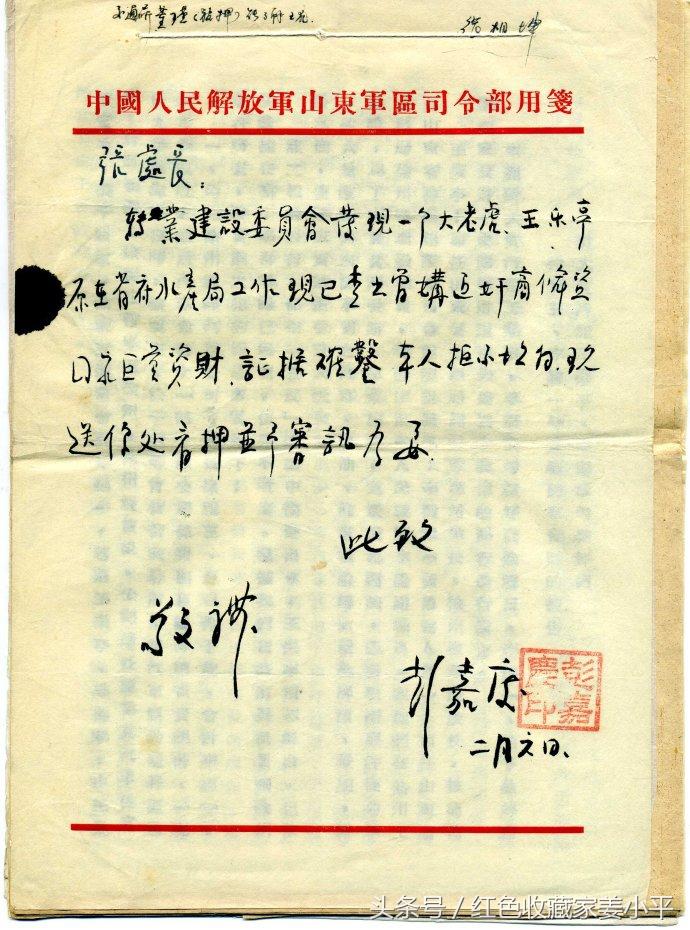 徐相坤
中國人民解放軍山東軍區司令部用箋
張處長：
轉業建設委員會發現一个大老虎、王乐亭
原在省府水產局工作现已查出曾媾通奸商偷盜
國家巨量資財，証据確鑿本人拒不坦白，现
送你处看押並予審訊為妥
此致
敬礼
彭嘉慶
彭嘉慶印
二月六日、
头条号 / 红色收藏家姜小平